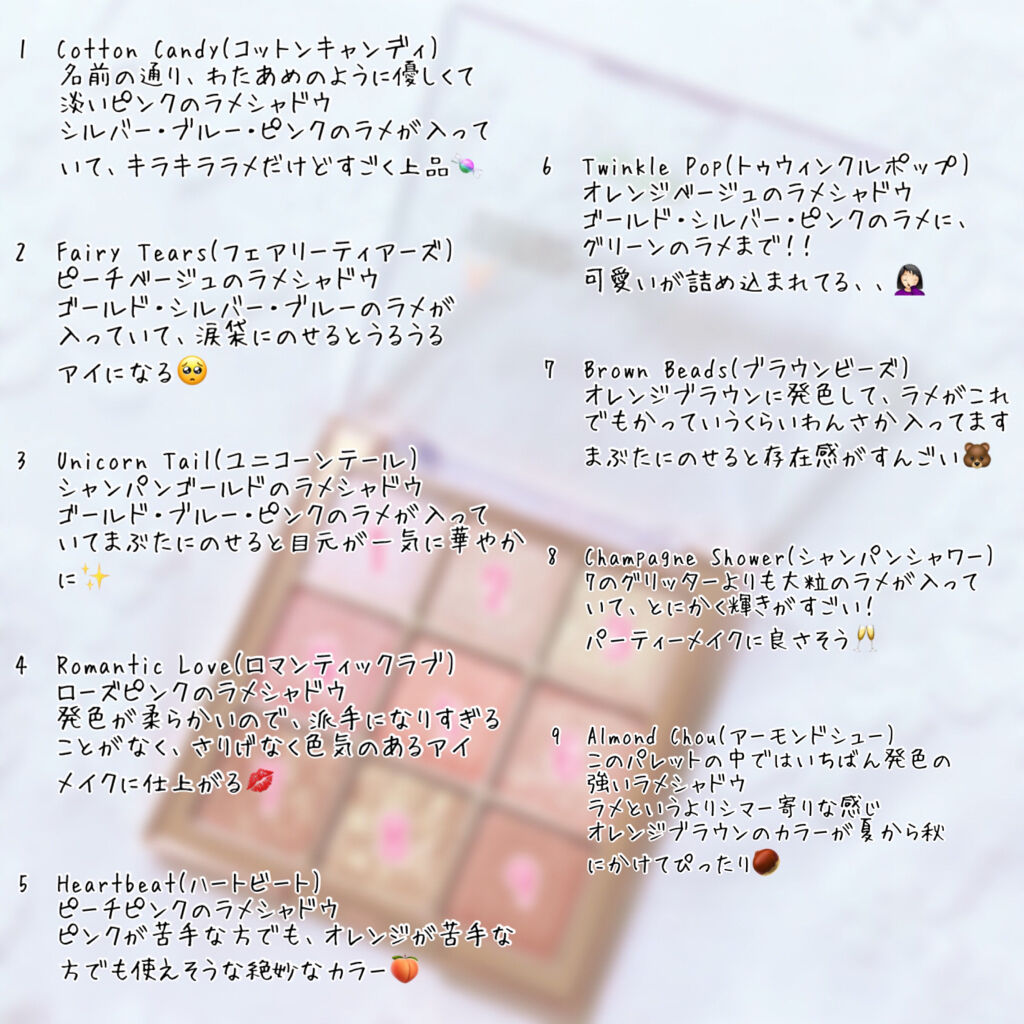 1 Cotton Candy(コットンキャンディ)
名前の通り、わたあめのように優しくて
淡いピンクのラメシャドウ
シルバー・ブルー・ピンクのラメが入って
いて、キラキララメだけどすごく上品🍬
2 Fairy Tears(フェアリーティアーズ)
ピーチベージュのラメシャドウ
ゴールド・シルバー・ブルーのラメが
入っていて、涙袋にのせるとうるうる
アイになる🥺
3 Unicorn Tail(ユニコーンテール)
シャンパンゴールドのラメシャドウ
ゴールド・ブルー・ピンクのラメが入って
いてまぶたにのせると目元が一気に華やか
に✨
4 Romantic Love(ロマンティックラブ)
ローズピンクのラメシャドウ
発色が柔らかいので、派手になりすぎる
ことがなく、さりげなく色気のあるアイ
メイクに仕上がる💋
5 Heartbeat(ハートビート)
ピーチピンクのラメシャドウ
ピンクが苦手な方でも、オレンジが苦手な
方でも使えそうな絶妙なカラー🍑
6 Twinkle Pop(トゥウィンクルポップ)
オレンジベージュのラメシャドウ
ゴールド・シルバー・ピンクのラメに、
グリーンのラメまで!!
可愛いが詰め込まれてる、、🤦🏻‍♀️
7 Brown Beads(ブラウンビーズ)
オレンジブラウンに発色して、ラメがこれ
でもかっていうくらいわんさか入ってます
まぶたにのせると存在感がすんごい🐻
8 Champagne Shower(シャンパンシャワー)
7のグリッターよりも大粒のラメが入って
いて、とにかく輝きがすごい!
パーティーメイクに良さそう🥂
9 Almond Chou(アーモンドシュー)
このパレットの中ではいちばん発色の
強いラメシャドウ
ラメというよりシマー寄りな感じ
オレンジブラウンのカラーが夏から秋
にかけてぴったり🌰